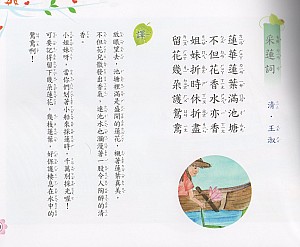 采蓮詞
清．王淑
蓮華蓮葉滿池塘
不但花香水亦香
姐妹折時休折盡
留花幾朵護鴛鴦
譯
放眼望去，池塘裡滿是盛開的蓮花，襯著蓮葉真美，
不但花兒散發出香氣，連池水也瀰漫著一股令人陶醉的清
香。
小姐妹呀，當你們划著小船來採蓮時，千萬別採光喔！
可要記得留下幾朵蓮花，幾枝蓮葉，好保護棲息在水中的
鴛鴦啊！